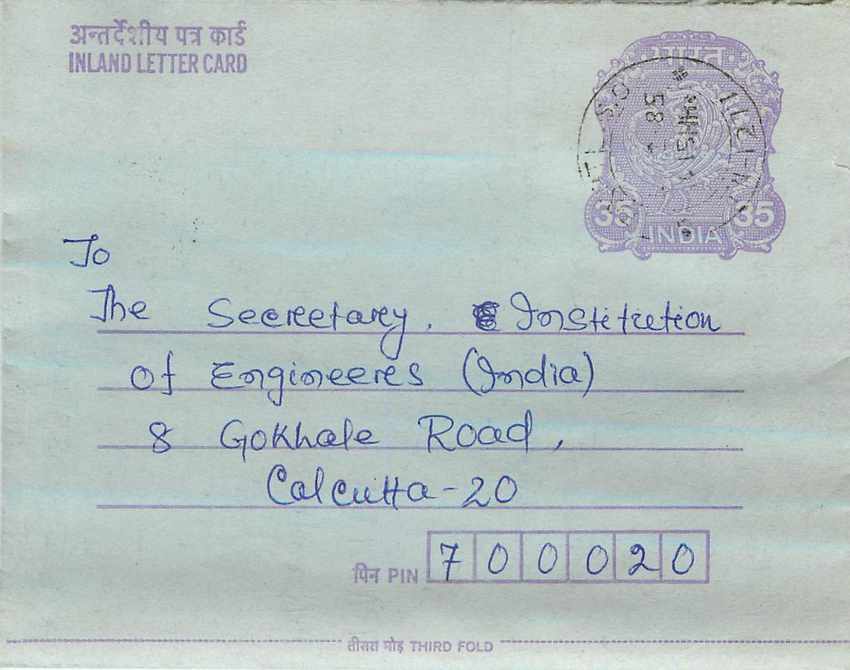 अन्तर्देशीय पत्र कार्ड
INLAND LETTER CARD
भारत
35 35
INDIA
To
The Secretary, Institution
of Engineers (India)
8 Gokhale Road,
Calcutta-20
पिन PIN 700020
तीसरा मोड़ THIRD FOLD